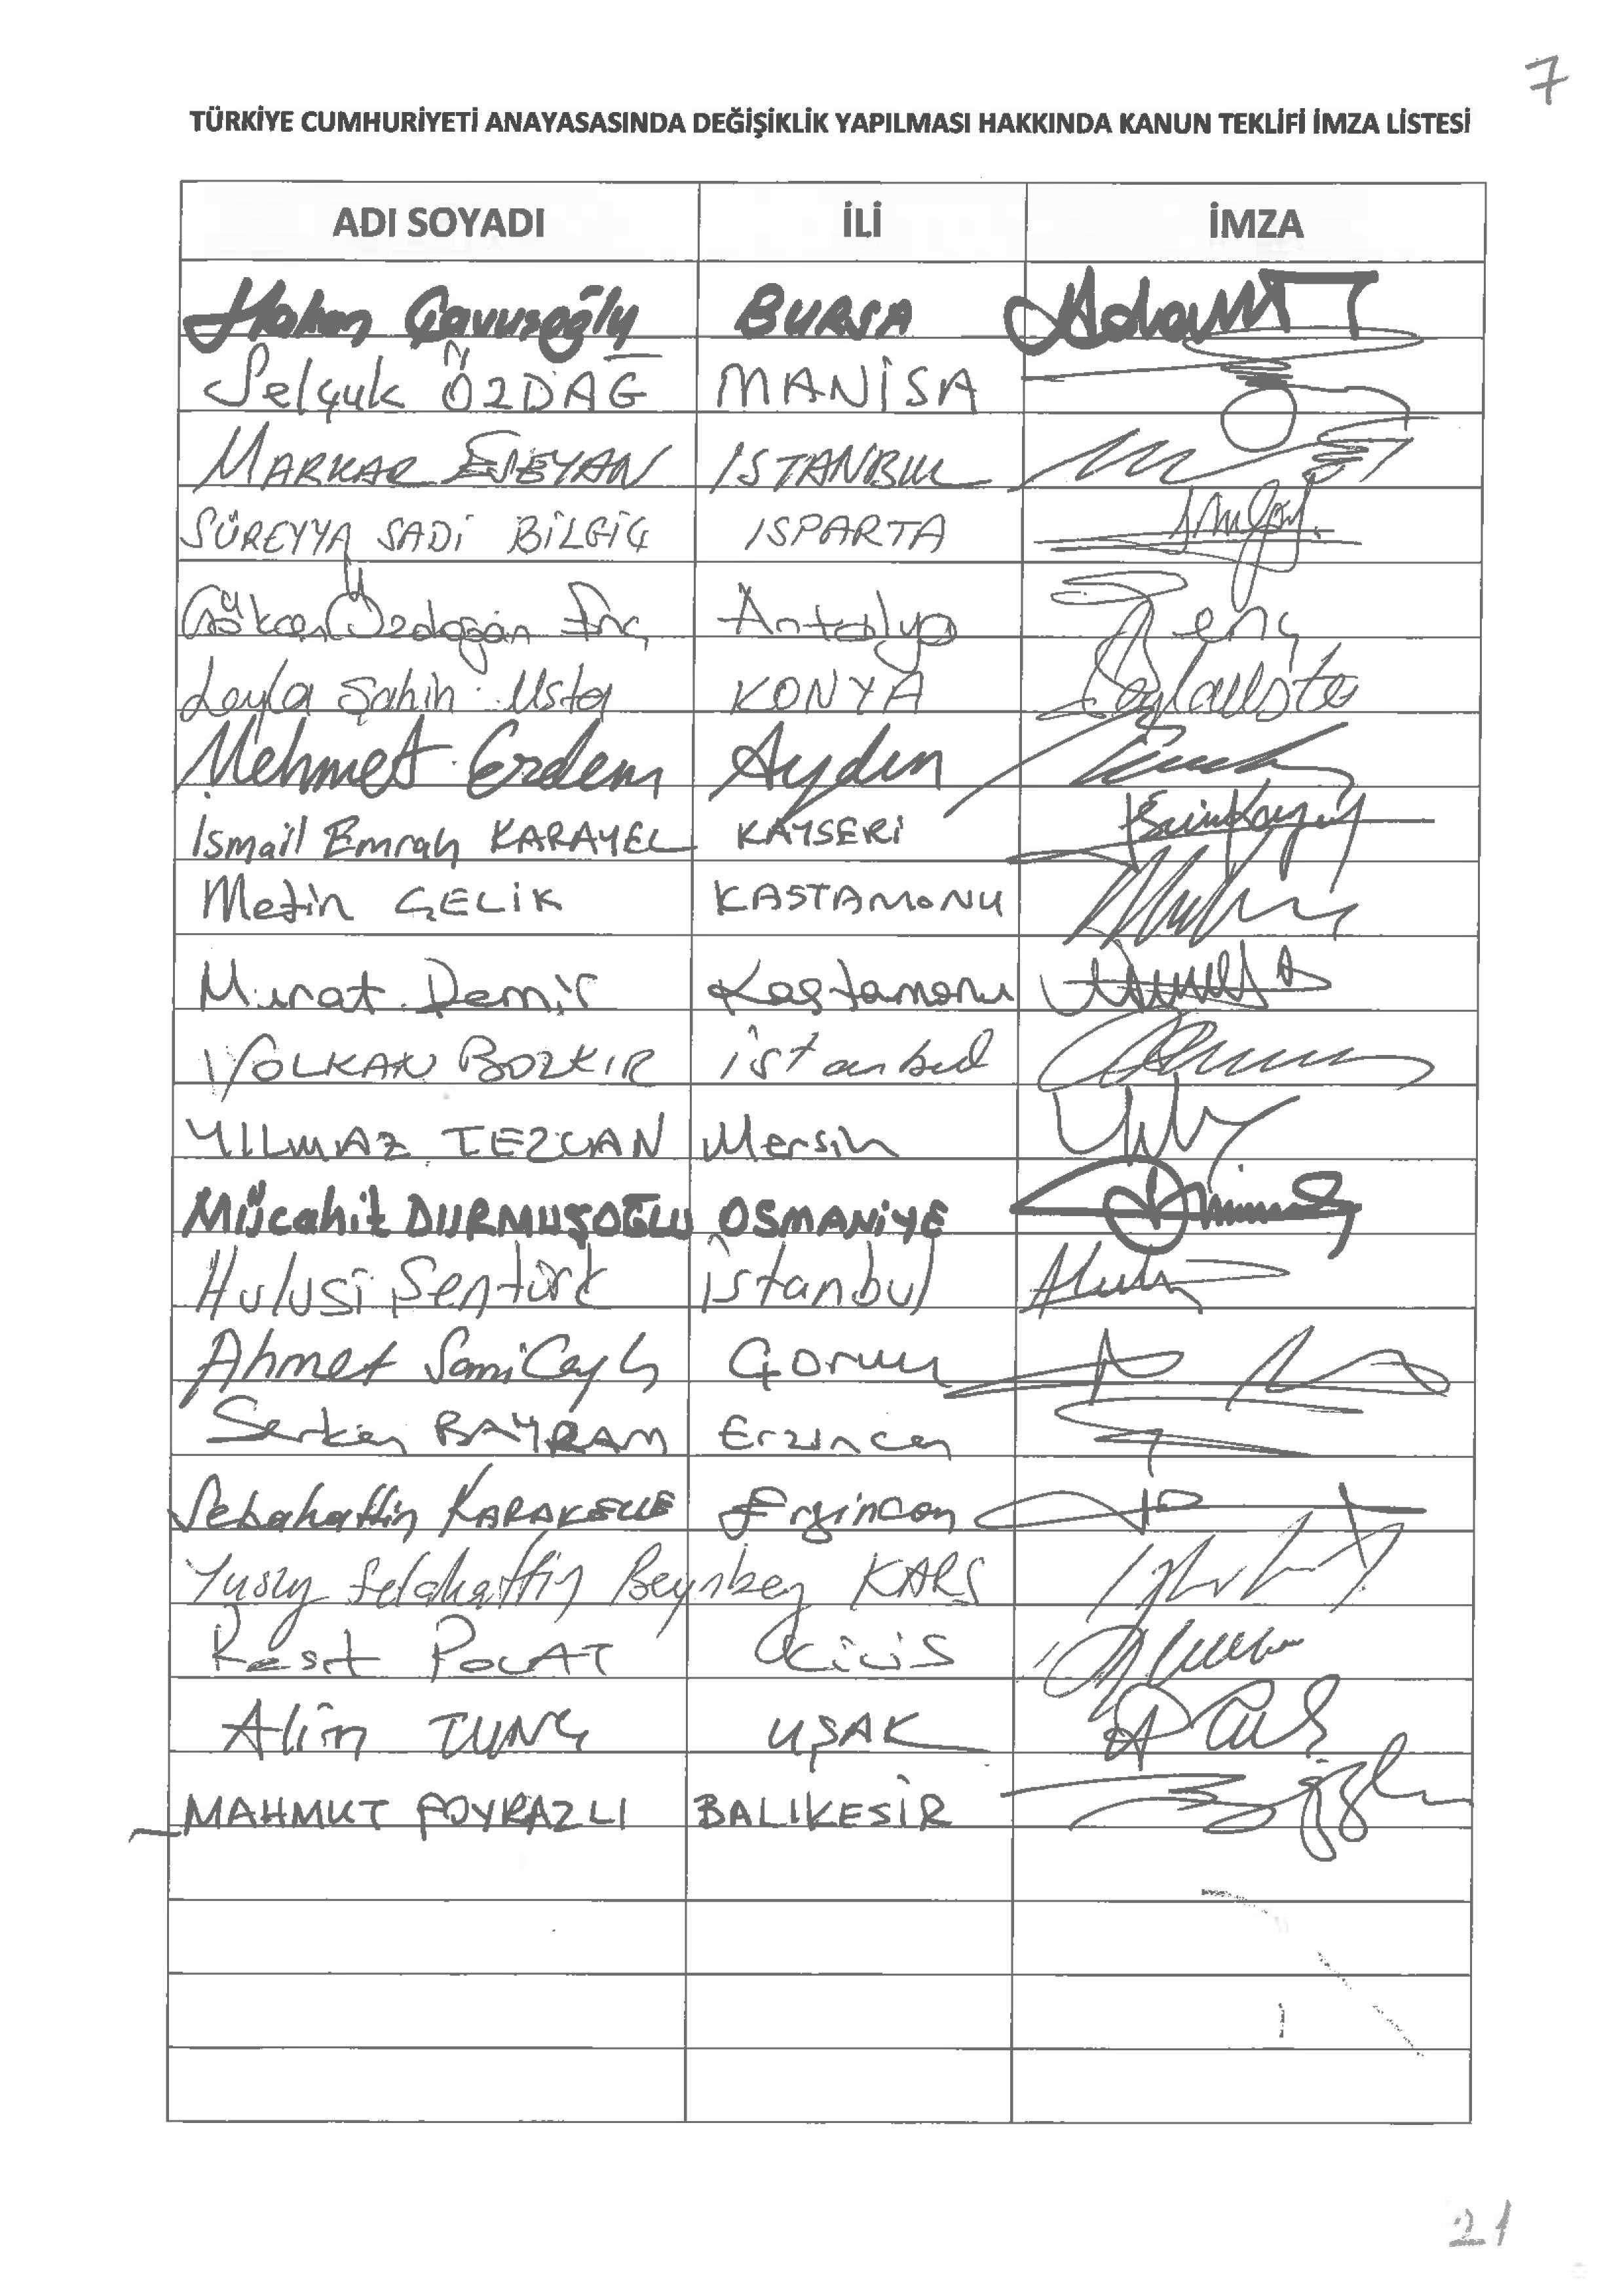 7
TÜRKİYE CUMHURİYETİ ANAYASASINDA DEĞİŞİKLİK YAPILMASI HAKKINDA KANUN TEKLİFİ İMZA LİSTESİ
ADI SOYADI İLİ İMZA
Hakan Çavuşoğlu BURSA
Selçuk ÖZDAĞ MANİSA
MARKAR ESEYAN ISTANBUL
SÜREYYA SADİ BİLGİÇ ISPARTA
Gökcen Özdoğan Enç Antalya Enç
Leyla Şahin Usta KONYA Leylausta
Mehmet Erdem Aydın
İsmail Emrah KARAYEL KAYSERİ
Metin ÇELİK KASTAMONU
Murat Demir Kastamonu
VOLKAN BOZKIR istanbul
YILMAZ TEZCAN Mersin
Mücahit DURMUŞOĞLU OSMANİYE
Hulusi Şentürk İstanbul
Ahmet Sami Ceylan Çorum
Serkan BAYRAM Erzincan
Sebahattin KARAKELLE Erzincan
Yusuf Selahattin Beyribey KARS
Reşit POLAT Kilis
Alim TUNÇ UŞAK
MAHMUT POYRAZLI BALIKESİR
21